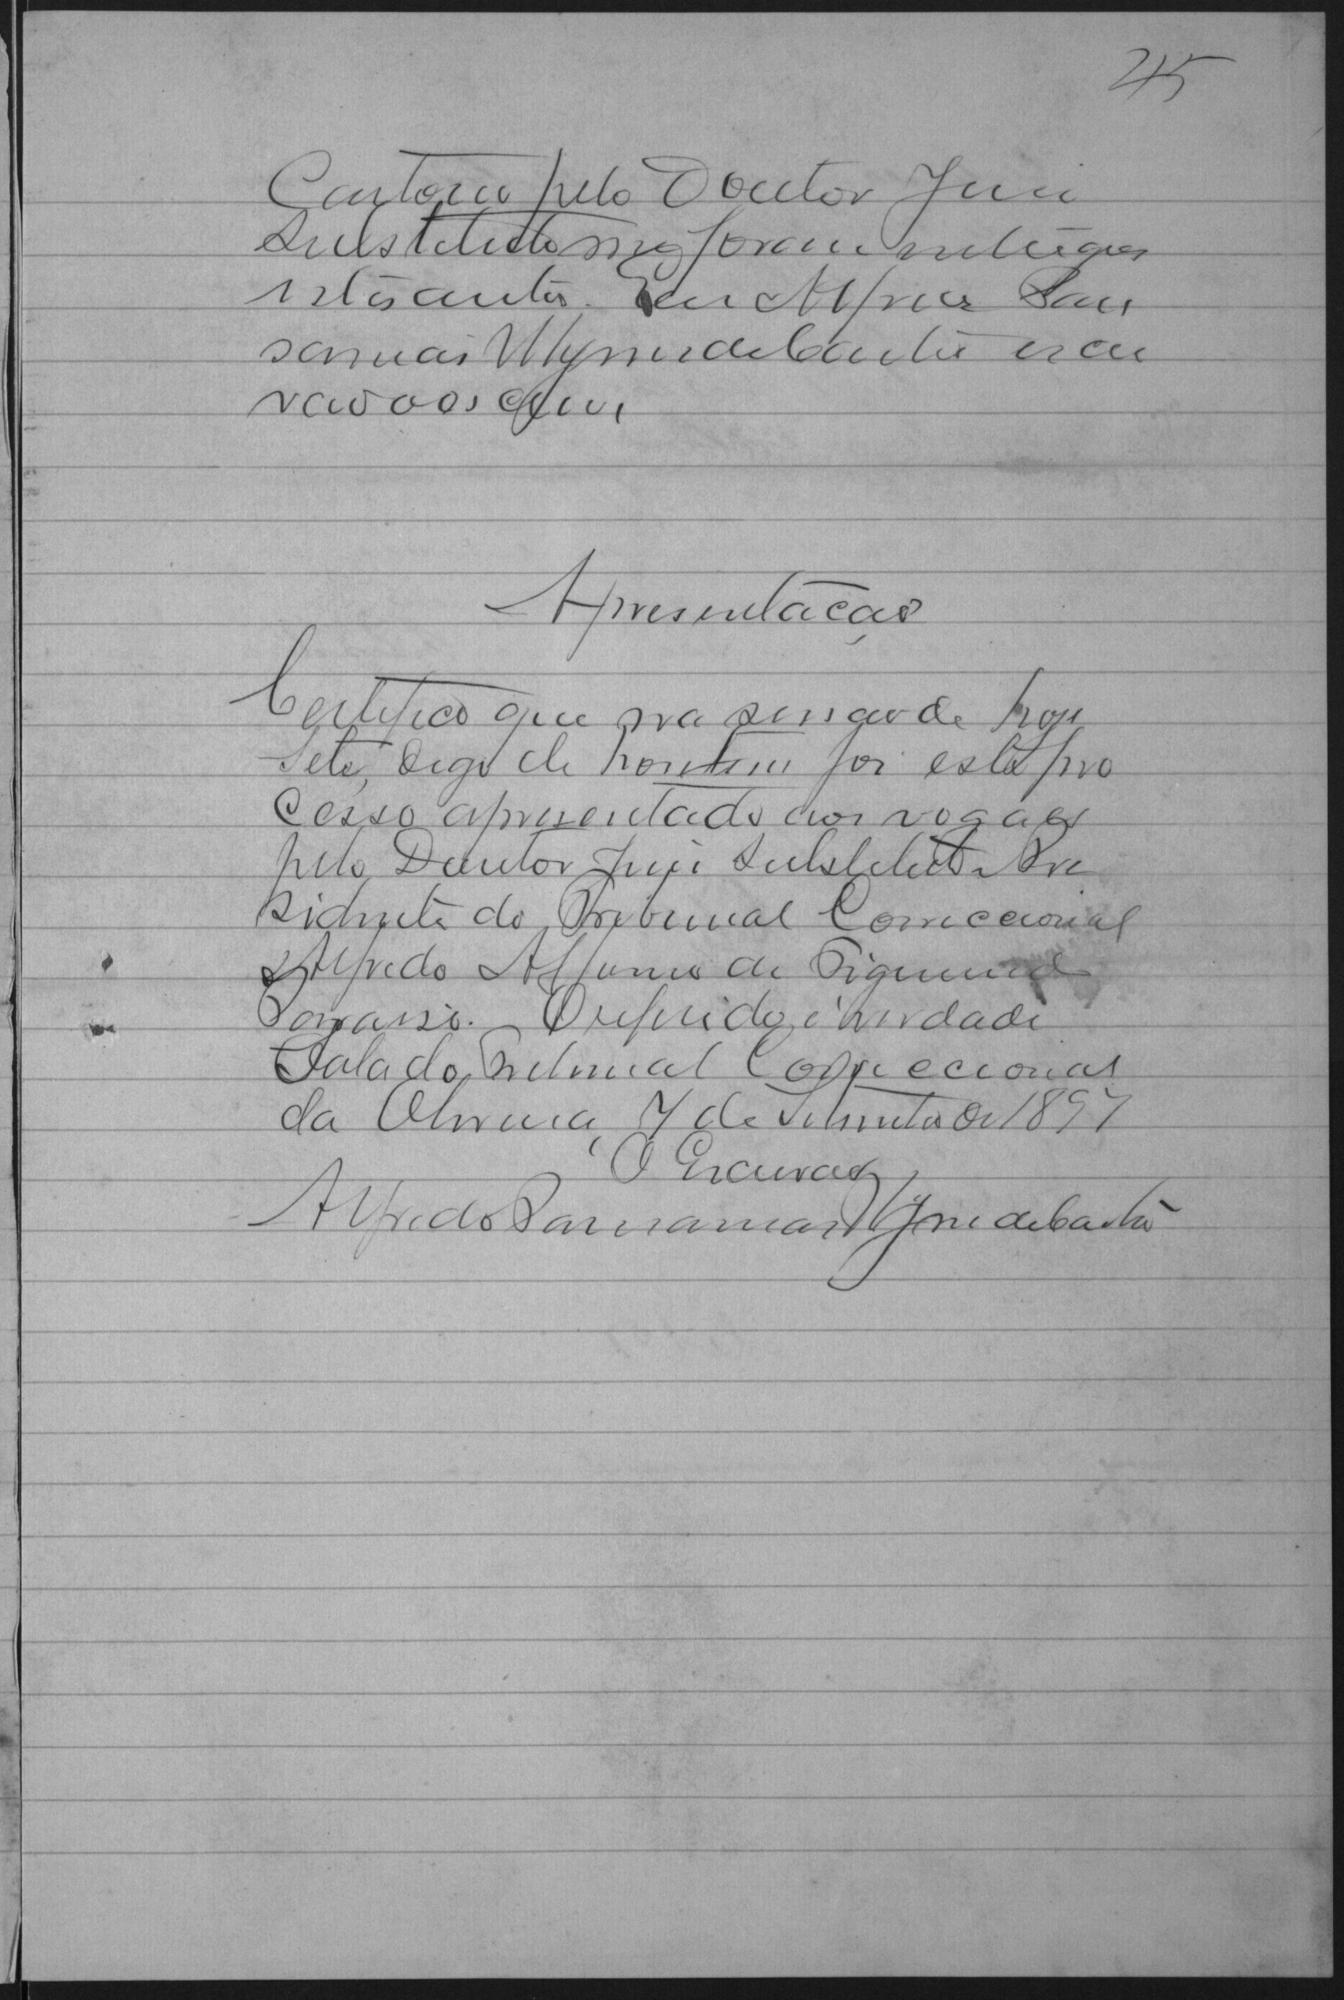 45
Cartorio pelo Doutor Juiz
Substituto me foram entregues
estes autos. Eu Alfredo San
samais escri
vão o escrevi
Apresentação
Certifico que na sessão de hoje
sete, digo de hontem foi este pro
cesso apresentado aos vogaes
pelo Doutor Juiz Substituto Pre
sidente do Tribunal Correccional
Alfredo Affonso de Figueiredo
O referido é verdade
Sala do Tribunal Correccional
da 7 de Setembro de 1897
O Escrivão
Alfredo de Castro